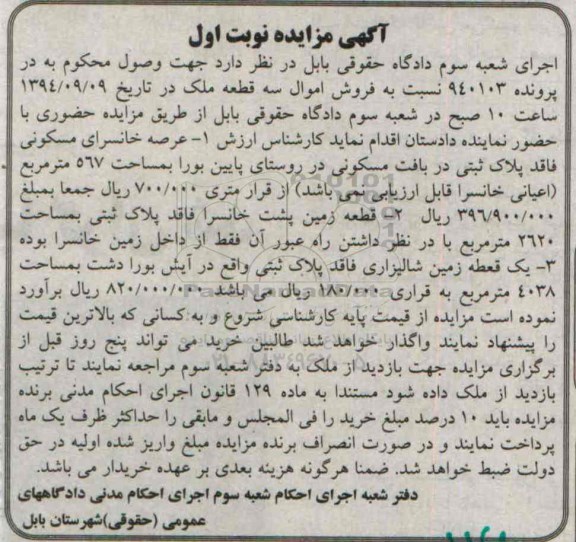 آگهی مزایده نوبت اول
اجرای شعبه سوم دادگاه حقوقی بابل در نظر دارد جهت وصول محکوم به در
پرونده ۹۴۰۱۰۳ نسبت به فروش اموال سه قطعه ملک در تاریخ ۱۳۹٤/۰۹/۰۹
ساعت ۱۰ صبح در شعبه سوم دادگاه حقوقی بابل از طریق مزایده حضوری با
حضور نماینده دادستان اقدام نماید کارشناس ارزش ۱- عرصه خانسرای مسکونی
فاقد پلاک ثبتی در بافت مسکونی در روستای پایین بورا بمساحت ٥٦۷ مترمربع
(اعیانی خانسرا قابل ارزیابی نمی باشد) از قرار متری ۷۰۰/۰۰۰ ریال جمعا بمبلغ
۳۹٦/۹۰۰/۰۰۰ ریال ۲- قطعه زمین پشت خانسرا فاقد پلاک ثبتی بمساحت
۲٦۲۰ مترمربع با در نظر داشتن راه عبور آن فقط از داخل زمین خانسرا بوده
۳- یک قطعه زمین شالیزاری فاقد پلاک ثبتی واقع در آیش بورا دشت بمساحت
٤۰۳۸ مترمربع به قراری ریال می باشد ۸۲۰/۰۰۰/۰۰۰ ریال برآورد
نموده است مزایده از قیمت پایه کارشناسی شروع و به کسانی که بالاترین قیمت
را پیشنهاد نمایند واگذار خواهد شد طالبین خرید می تواند پنج روز قبل از
برگزاری مزایده جهت بازدید از ملک به دفتر شعبه سوم مراجعه نمایند تا ترتیب
بازدید از ملک داده شود مستندا به ماده ۱۲۹ قانون اجرای احکام مدنی برنده
مزایده باید ۱۰ درصد مبلغ خرید را فی المجلس و مابقی را حداکثر ظرف یک ماه
پرداخت نمایند و در صورت انصراف برنده مزایده مبلغ واریز شده اولیه در حق
دولت ضبط خواهد شد. ضمنا هرگونه هزینه بعدی بر عهده خریدار می باشد.
دفتر شعبه اجرای احکام شعبه سوم اجرای احکام مدنی دادگاههای
عمومی (حقوقی)شهرستان بابل